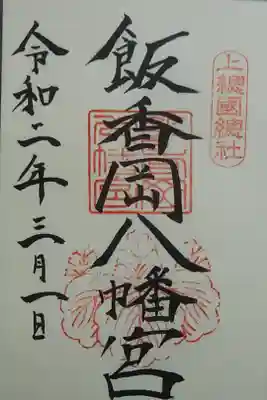 上總國總社
飯香岡八幡宮
令和二年三月一日